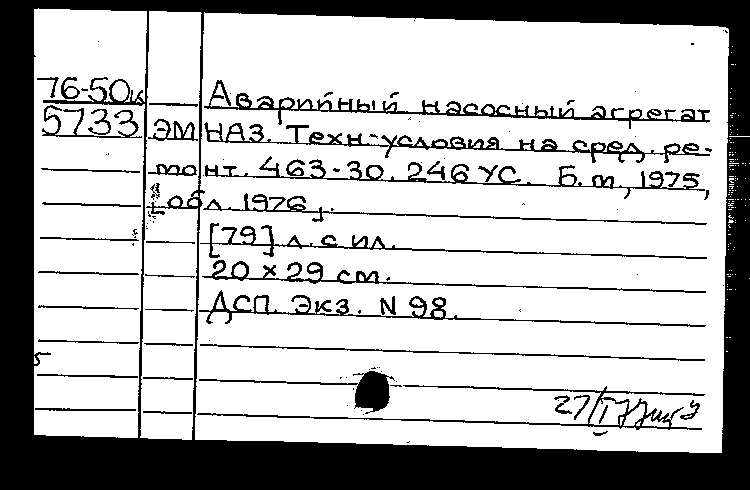 76-50к Аварийный насосный агрегат
5733 ЭМНАЗ. Техн. условия на сред. ре-
монт. 463-30. 246 УС. Б. м., 1975,
[обл. 1976].
[79] л. с ил.
20 × 29 см.
ДСП. Экз. N 98.
27/I